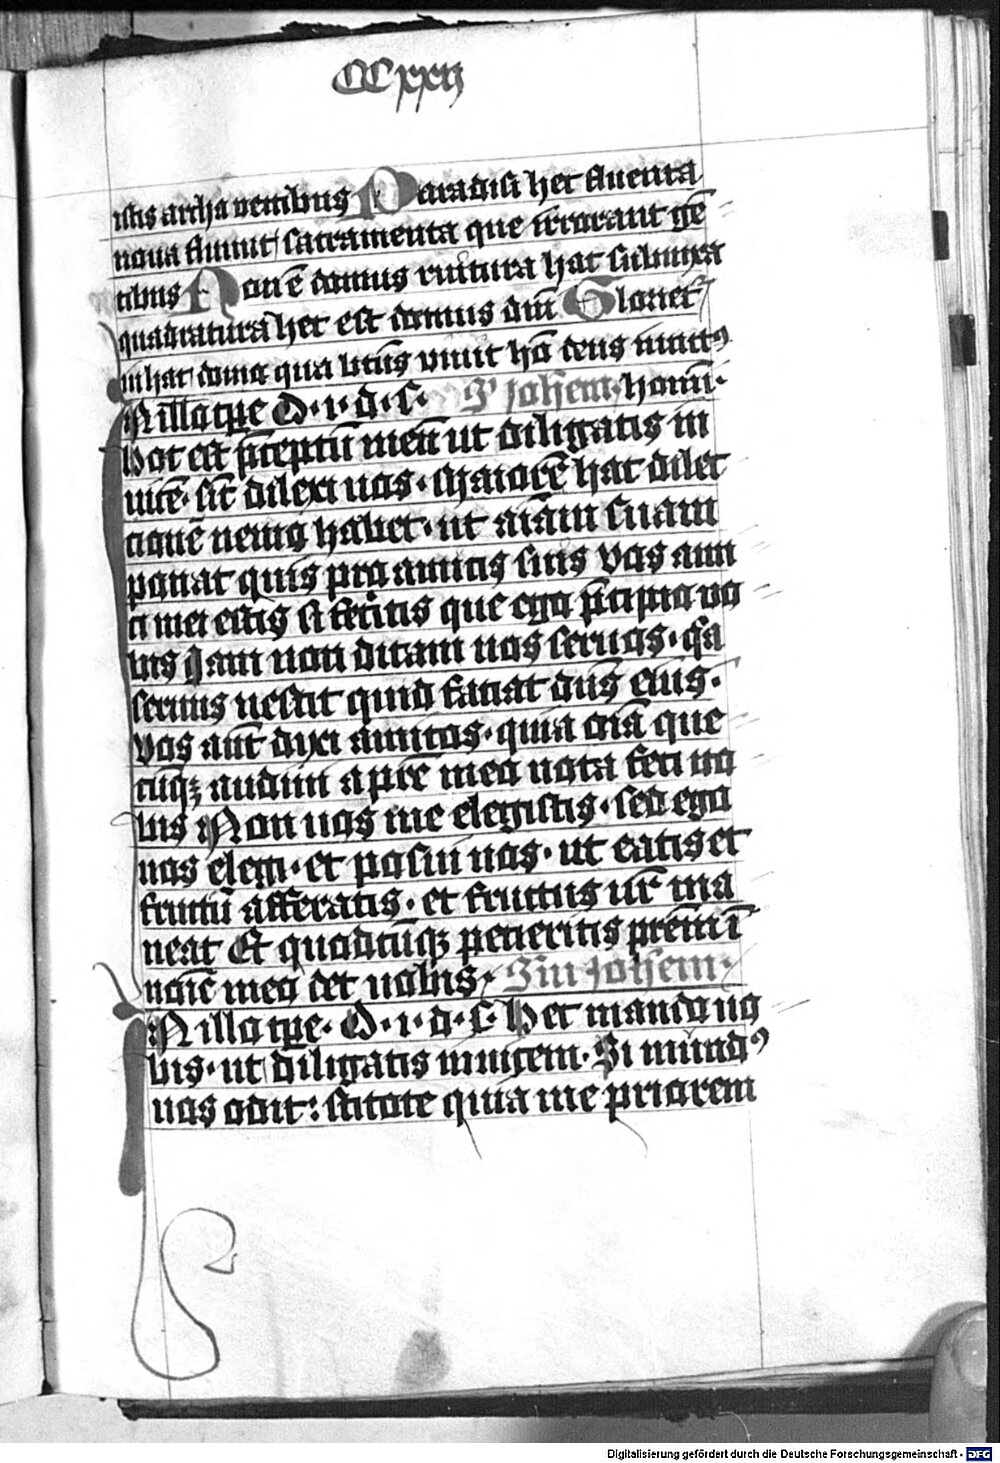 CCxxij
istis archa vehitibus Paradisi hec fluenta
noua fluunt sacramenta que irrorant gē
tibus Non ē domus ruitura hac subnixa
quadratura hec est domus dn̄i Gloriet̄
in hac domo qua btūs viuit hō deus unit9
IN illo tp̄e D. i. d. s. S' johem. homi.
hoc est p̄ceptū meū ut diligatis in
uicē. sic̄ dilexi uos. Maiorē hac dilec
cionē nemo habet. ut aīam suam
ponat quis pro amicis suis Vos ami
ci mei estis si feceritis que ego p̄cipio vo
bis Iam non dicam uos seruos. q̄a
seruus nescit quid faciat dn̄s eius.
Vos aūt dixi amicos. quia oīa que
cūqꝫ audiui a pr̄e meo nota feci uo
bis Non uos me elegistis. sed ego
uos elegi. et posui uos. ut eatis et
fructū afferatis. et fructus ur̄ ma
neat Et quodcūqꝫ petieritis prēm ī
noīe meo det uobis. Sm johem.
IN illo tp̄e. D. i. d. s. Hec mando uo
bis. ut diligatis inuicem. Si mūnd9
uos odit: scitote quia me priorem
Digitalisierung gefördert durch die Deutsche Forschungsgemeinschaft - DFG